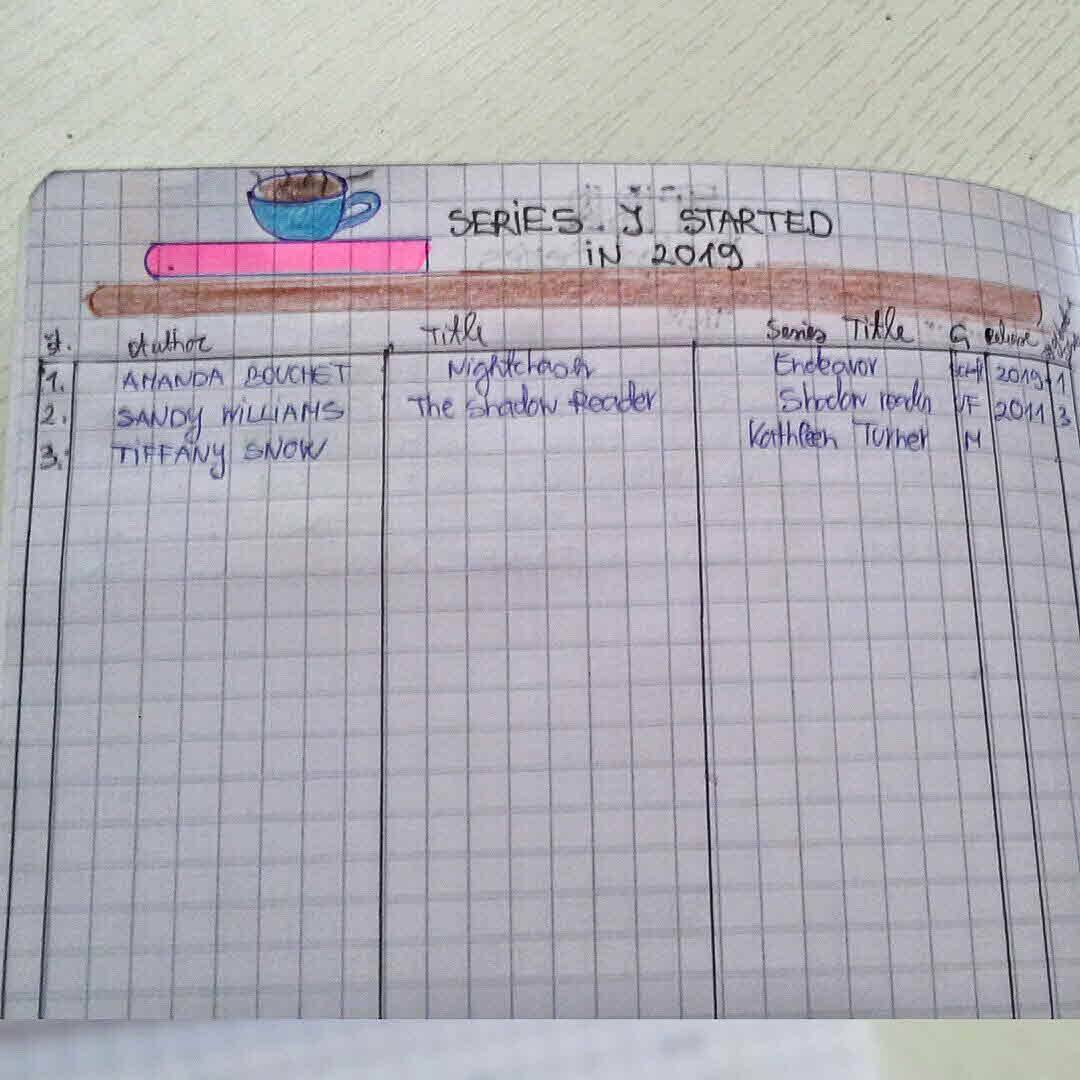 SERIES I STARTED
IN 2019
Author Title Series Title G Release
1. AMANDA BOUCHET Nightchaser Endeavor 2019 1
2. SANDY WILLIAMS The Shadow Reader Shadow reader UF 2011 3
3. TIFFANY SNOW Kathleen Turner M